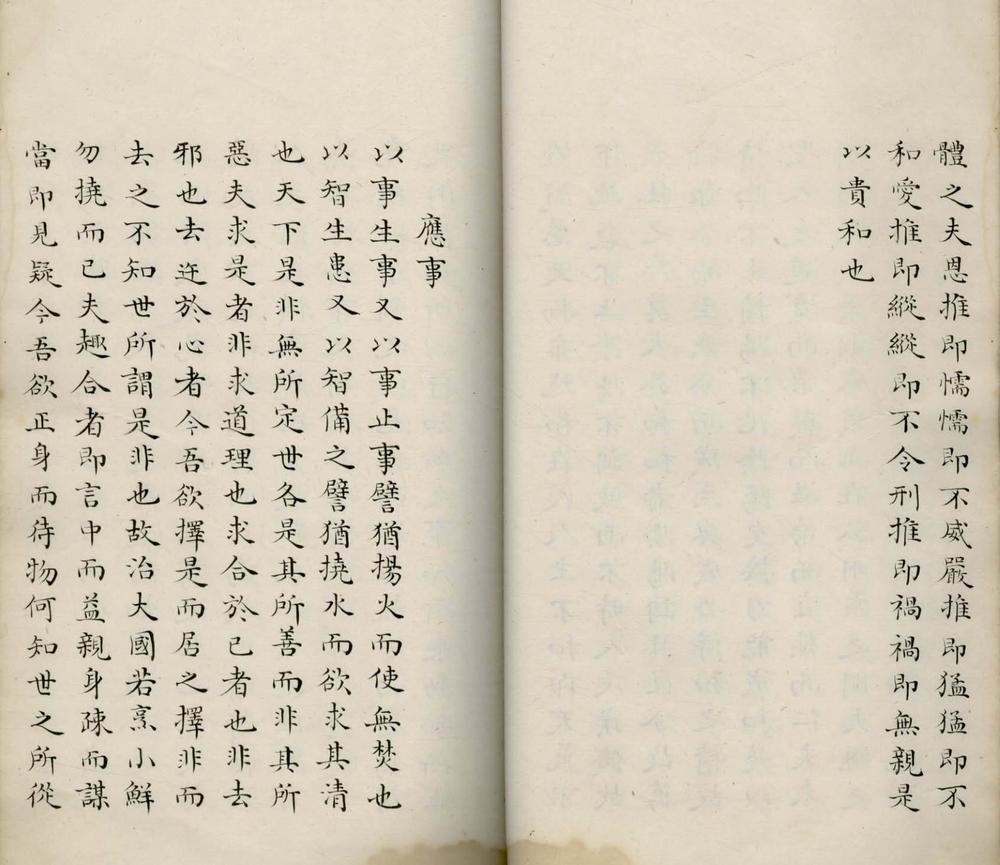 體之夫恩推即懦懦即不威嚴推即猛猛即不
和愛推即縱縱即不令刑推即禍禍即無親是
以貴和也
應事
以事生事又以事止事譬猶揚火而使無焚也
以智生患又以智備之譬猶撓水而欲求其清
也天下是非無所定世各是其所善而非其所
惡夫求是者非求道理也求合於己者也非去
邪也去迕於心者今吾欲擇是而居之擇非而
去之不知世所謂是非也故治大國若烹小鮮
勿撓而已夫趣合者即言中而益親身疎而謀
當即見疑今吾欲正身而待物何知世之所從